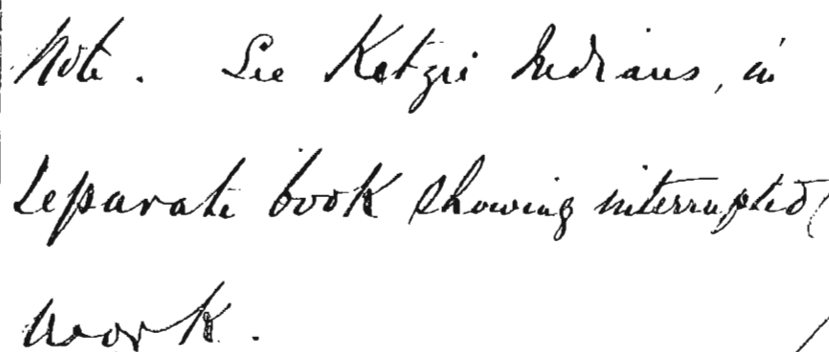 Note. See Katzie Indians, in
separate book showing interrupted
work.